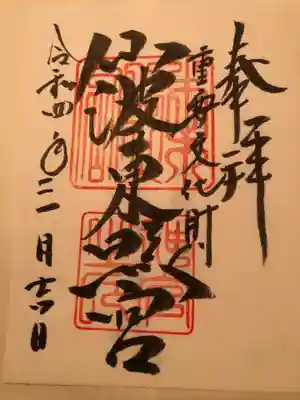 奉拝
重要文化財
仙波東照宮
令和四年三月十六日